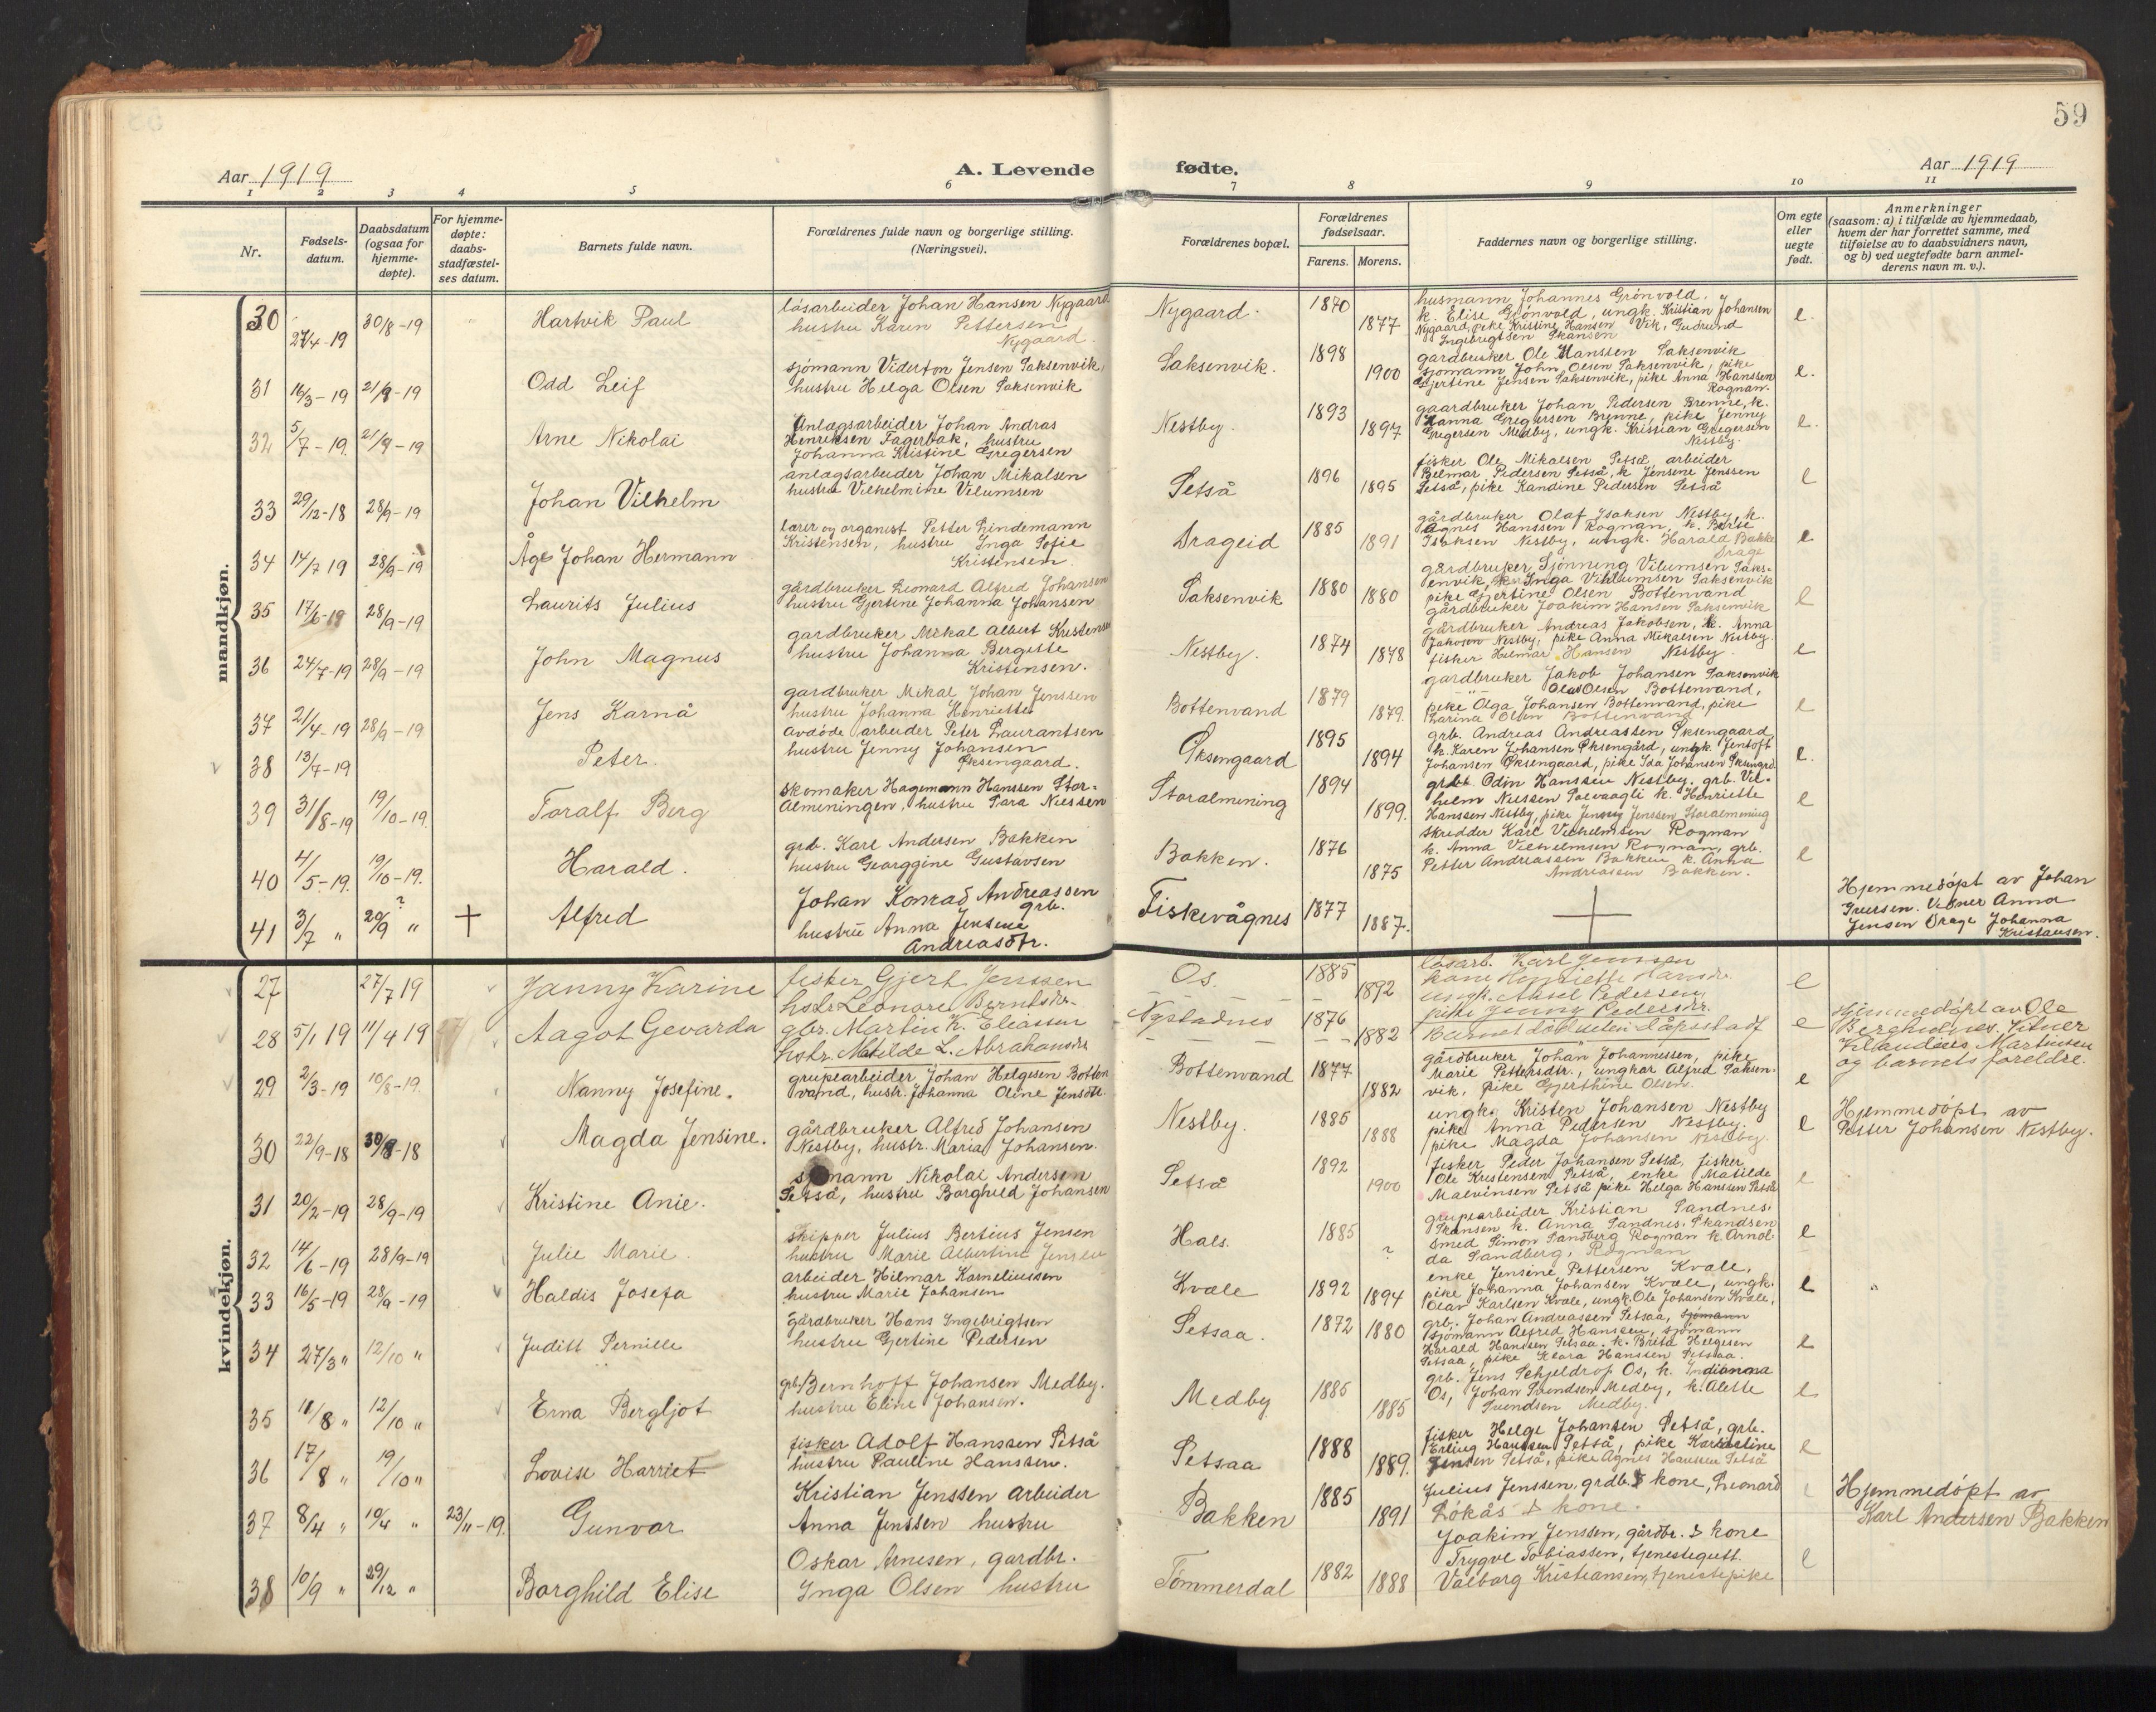 59
Aar 1919
A. Levende
fødte.
Aar 1919
1 2 3 4 5 6 7 8 9 10 11
Nr.
Fødsels-
datum.
Daabsdatum
(ogsaa for
hjemme-
døpte).
For hjemme-
døpte:
daabs-
stadfæstel-
ses datum.
Barnets fulde navn.
Forældrenes fulde navn og borgerlige stilling.
(Næringsvei).
Forældrenes bopæl.
Forældrenes
fødselsaar.
Farens. Morens.
Faddernes navn og borgerlige stilling.
Om egte
eller
uegte
født.
Anmerkninger
(saasom: a) i tilfælde av hjemmedaab,
hvem der har forrettet samme, med
tilføielse av to daabsvidners navn,
og b) ved uegtefødte barn anmel-
derens navn m. v.).
mandkjøn.
30 27/4-19 30/8-19 Hartvik Paul
løsarbeider Johan Hansen Nygaard
hustru Karen Pettersen
Nygaard.
Nygaard. 1870 1877
husmann Johannes Grönvold.
k. Elise Grönvold, ungk. Kristian Johansen
Nygaard, pike Kristine Hansen Vik, Gudrund
Ingebrigtsen Skansen
e.
31 16/3-19 21/9-19 Odd Leif
sjömann Viderton Jensen Saksenvik,
hustru Helga Olsen Saksenvik
Saksenvik. 1898 1900
gardbruker Ole Hanssen Saksenvik
sjömann John Olsen Saksenvik, pike
Gjertine Jensen Saksenvik, pike Anna Hanssen
Rognan.
e.
32 5/7-19. 21/9-19 Arne Nikolai
Anlægsarbeider Johan Andras
Henriksen Fagerbak, hustru
Johanna Kristine Gregersen
Nestby. 1893 1897
gaardbruker Johan Pedersen Brenne, k.
Hanna Gregersen Brenne, pike Jenny
Gregersen Medby, ungk. Kristian Gregersen
Nestby.
e.
33 29/12-18 28/9-19 Johan Vilhelm
anlægsarbeider Johan Mikalsen
hustru Vilhelmine Vilumsen
Setså 1896 1895
fisker Ole Mikalsen Setså, arbeider
Belmar Pedersen Setså, k Jensene Jenssen
Setså, pike Kandine Pedersen Setså
e
34 14/7 19 28/9-19 Åge Johan Hermann
lærer og organist Petter Lindemann
Kristensen, hustru Inga Sofie
Kristensen.
Drageid 1885 1891
gårdbruker Olaf Isaksen Nestby, k.
Agnes Hanssen Rognan, k. Berte
Isaksen Nestby, ungk. Harald Bakke
Drage
e
35 17/6-19 28/9-19 Laurits Julius
gårdbruker Leonard Alfred Johansen
hustru Gjertine Johanna Johansen
Saksenvik 1880 1880
gårdbruker Sjönning Vilumsen Saks-
envik, k. Inga Vilhumsen Saksenvik
pike Gjertine Olsen Bottenvand
gårdbruker Joakim Hansen Saksenvik
e
36 24/7-19 28/9-19 John Magnus
gardbruker Mikal Albert Kristensen
hustru Johanna Bergette
Kristensen.
Nestby. 1874 1878
gårdbruker Andreas Jakobsen, k. Anna
Jakosen Nestby, pike Anna Mikalsen Nestby.
fisker Hilmar Hansen Nestby.
e
37 21/4-19 28/9-19 Jens Karnå
gardbruker Mikal Johan Jenssen
hustru Johanna Henriette
Bottenvand 1879 1879.
gardbruker Jakob Johansen Saksenvik
-"- Olaf Olsen Bottenvand,
pike Olga Johansen Bottenvand, pike
Karina Olsen Bottenvand
e
38 13/7-19 Peter.
avdöde arbeider Peter Laurantsen
hustru Jenny Johansen
Öksengaard.
Öksengaard 1895 1894
grb. Andreas Andreassen Öksengaard
k. Karen Johansen Öksengård, ungk. Jentoft
Johansen Öksengaard, pike Ida Johansen Öksengrd
e.
39 31/8-19 19/10-19. Toralf Berg
skomaker Hagemann Hanssen Stor-
Almeningen, hustru Sara Nilssen
Storalmening 1894 1899.
grbk Odin Hanssen Nestby. grb. Vil-
helm Nilssen Saevaagli k. Henriette
Hanssen Nestby, pike Jenssy Jenssen Storalmening
e
40 4/5-19. 19/10-19. Harald.
grb. Karl Andersen Bakken
hustru Georggine Gustavsen
Bakken. 1876 1875
skrædder Karl Vilhelmsen Rognan
k. Anna Vilhelmsen Rognan, grb.
Petter Andreassen Bakken k. Anna
Andreassen Bakken.
e
41 3/7 " 20/9 ? " + Alfred
Johan Konrad Andreassen
grb.
hustru Anna Jensine
Andreasdtr.
Fiskevågnes 1877 1887.
Hjemmedöpt av Johan
Iversen. Vidner Anna
Jensen Drage Johanna
Kristansen.
kvindekjøn.
27 27/7 19 Janny Karine
fisker Gjert Jenssen
hstr Leonore Berntsdtr.
Os. 1885 1892
løsarb. Karl Jenssen
kone Henriette Hansdtr.
ungk. Aksel Pedersen
pike Jenny Pedersdtr.
e
28 5/1 19 11/4 19 Aagot Gevarda
gbr. Martin K. Eliassen
hstr. Matilde L. Abrahamsdtr
Nystadnes 1876 1882
Barnet död uten dåpsstadf
e
Hjemmedöpt av Ole
og barnets foreldre.
29 2/3-19 10/8-19. Nanny Josefine.
grupearbeider Johan Helgesen Botten
vand, hustr. Johanna Oline Jensdtr.
Bottenvand 1877 1882
gårdbruker Johan Johannessen, pike
Marie Pettersdtr., ungkar Alfred Saksen-
vik, pike Gjerthine Olsen.
e
30 22/9-18 30/8-18 Magda Jensine.
gårdbruker Alfred Johansen
Nestby, hustr. Maria Johansen.
Nestby. 1885 1888
ungk. Kristen Johansen Nestby
pike Anna Pedersen Nestby.
pike Magda Johansen Nestby.
e
Hjemmedöpt av
Petter Johansen Nestby.
31 20/2-19 28/9-19 Kristine Anie.
sjömann Nikolai Andersen
Setså, hustru Borghild Johansen
Setså 1892 1900
fisker Peder Johansen Setså, fisker
Ole Kristensen Setså, enke Matilde
Malvinsen Setså pike Helga Hanssen Setså
e
32 14/6-19 28/9-19 Julie Marie.
skipper Julius Bertius Jensen
hustru Marie Albertine Jensen
Hals. 1885 ?
grupearbeider Kristian Sandnes.
Skansen k. Anna Sandnes. Skandsen
smed Simon Sandberg Rognan k. Arnol-
da Sandberg, Rognan
e
33 16/5-19 28/9-19 Haldis Josefa
arbeider Hilmar Korneliussen
hustru Marie Johansen
Kvæle 1892 1894
enke Jensine Pettersen Kvale,
pike Johanna Johansen Kvæle, ungk.
Olav Karlsen Kvale, ungk. Ole Johansen Kvæle,
e
34 27/3 " 12/10 " Juditt Pernille
Gårdbruker Hans Ingebrigtsen
hustru Gjertine Pedersen
Setsaa. 1872 1880
grb. Johan Andreassen Setsaa, sjömann
sjömann Alfred Hanssen, sjömann
Harald Hanssen Setsaa. k. Brita Helgesen
Setsaa, pike Klara Hanssen Setsaa.
e
35 11/8 " 12/10 " Erna Bergljot
grb. Bernhoff Johansen Medby.
hustru Eline Johansen.
Medby 1885 1885
grb. Jens Schjeldrop Os, k. Indianna
Os, Johan Svendsen Medby, k. Alette
Svendsen Medby.
e
36 17/8 " 19/10 " Lovise Harriet
fisker Adolf Hanssen Setså
hustru Pauline Hanssen.
Setsaa 1888 1889.
fisker Helge Johansen Setså, grb.
Erling Hanssen Setså, pike Karoline
Jensen Setså, pike Agnes Hanssen Setså
e
37 8/4 " 19/4 " 23/11-19. Gunvor
Kristian Jenssen arbeider
Anna Jenssen hustru
Bakken 1885 1891
Julius Jenssen, grdb. & kone, Leonard
Lökås & kone.
Joakim Jenssen, gårdbr. & kone
e
Hjemmedöpt av
Karl Andersen Bakken
38 10/9 " 29/12 " Borghild Elise
Oskar Arnesen, gardbr.
Inga Olsen hustru
Tömmerdal 1882 1888
Trygve Tobiassen, tjenestegutt.
Valborg Kristiansen, tjenestepike
e